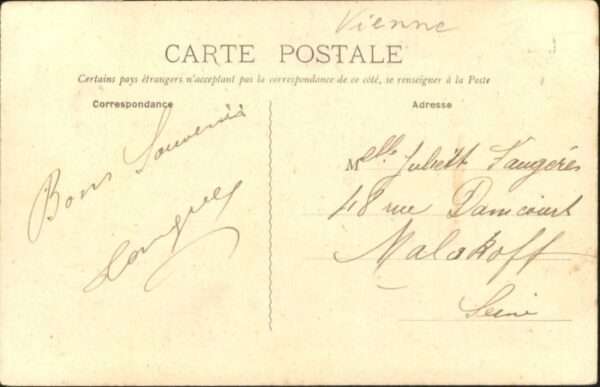 Vienne
CARTE POSTALE
Certains pays étrangers n'acceptant pas la correspondance de ce côté, se renseigner à la Poste
Correspondance
Adresse
Bons Souvenirs
Mlle Juliett Faugères
48 rue Damcourt
Malakoff
Seine